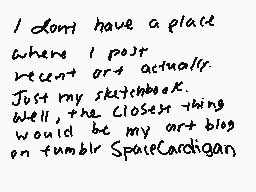 I dont have a place
where I post
recent art actually.
Just my sketchbook.
Well, the closest thing
would be my art blog
on tumblr SpaceCardigan